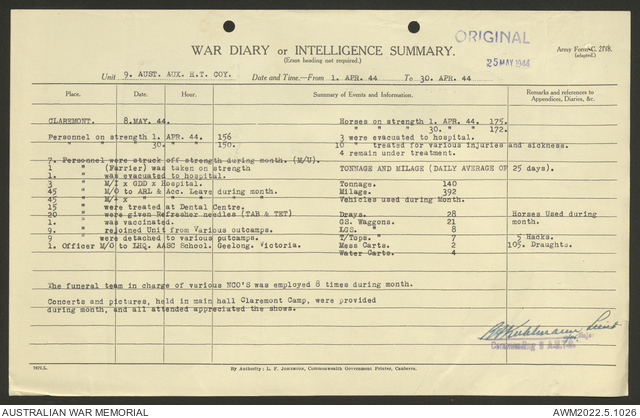 ORIGINAL
25 MAY 1944
Army Form C. 2118.
(adapted.)
WAR DIARY or INTELLIGENCE SUMMARY.
(Erase heading not required.)
Unit 9. AUST. AUX. H.T. COY. Date and Time.—From 1. APR. 44 To 30. APR. 44
Place. Date. Hour. Summary of Events and Information. Remarks and references to Appendices, Diaries, &c.
CLAREMONT. 8.MAY. 44. Horses on strength 1. APR. 44 175.
" " " 30. " " 172.
Personnel on strength 1. APR. 44. 156 3 were evacuated to hospital.
" " " 30. " " 150. 10 " treated for various injuries and sickness.
4 remain under treatment.
7. Personnel were struck off strength during month. (M/U).
1 " (Farrier) was taken on strength TONNAGE AND MILAGE (DAILY AVERAGE OF 25 days).
1. " was evacuated to hospital.
3 " M/I x GDD x Hospital. Tonnage. 140
45 " M/O to ARL & Acc. Leave during month. Milage. 392
45 " M/I x " " " " " Vehicles used during Month.
15 " were treated at Dental Centre.
20 " were given Refresher needles (TAB & TET) Drays. 28 Horses Used during
1. " was vaccinated. GS. Waggons. 21 month.
9. " rejoined Unit from Various outcamps. LGS. " 8
9 " were detached to various outcamps. T/Tops. " 7 5 Hacks.
1. Officer M/O to LHQ. AASC School. Geelong. Victoria. Mess Carts. 2 105. Draughts.
Water Carts. 4
The funeral team in charge of various NCO'S was employed 8 times during month.
Concerts and pictures, held in main hall Claremont Camp, were provided
during month, and all attended appreciated the shows.
Lieut
Major
Commanding 9
By Authority: L. F. Johnston, Commonwealth Government Printer, Canberra.
AUSTRALIAN WAR MEMORIAL
AWM2022.5.1026